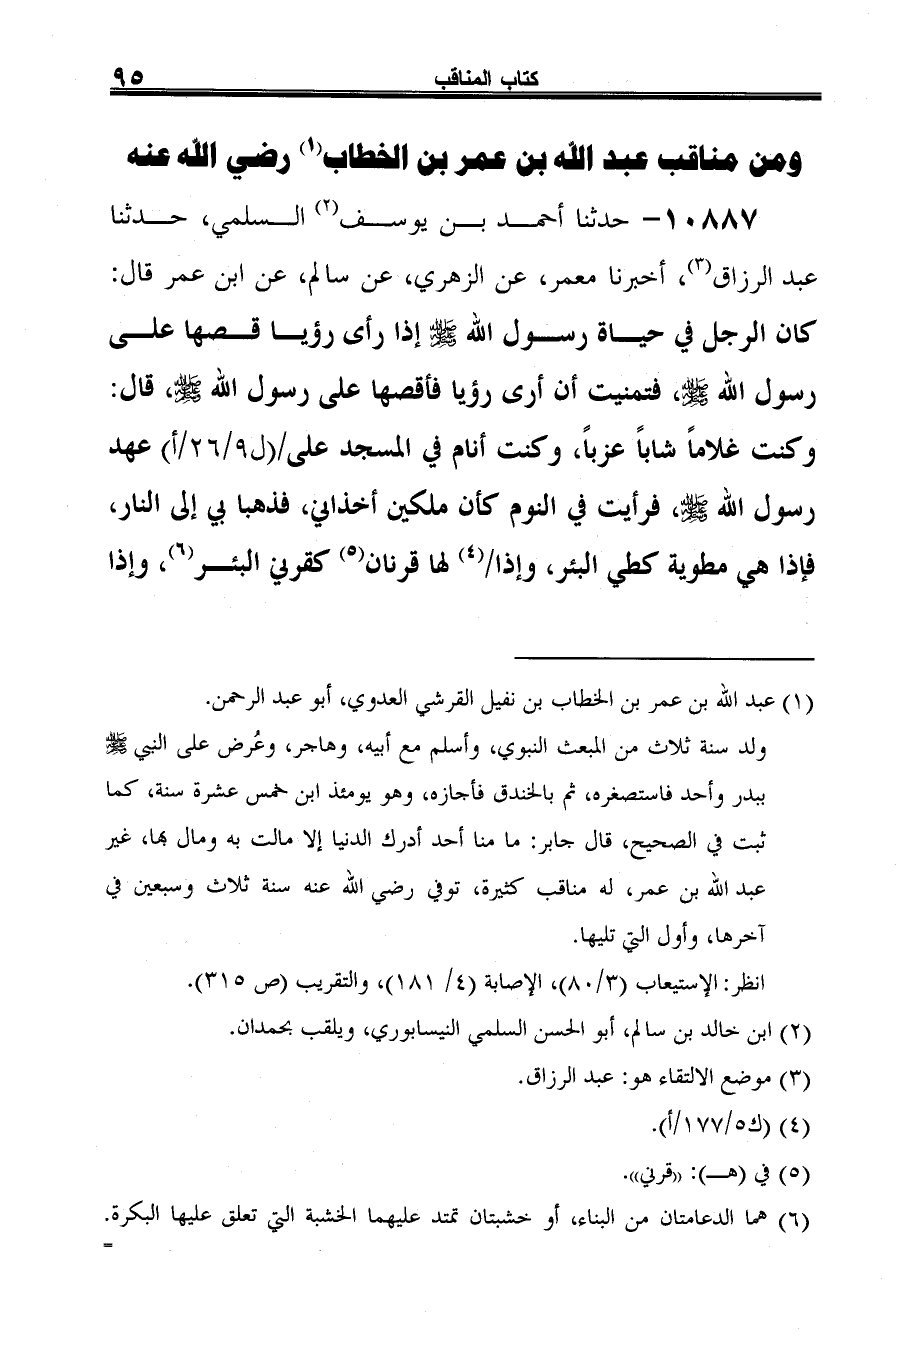 كتاب المناقب ٩٥
ومن مناقب عبد الله بن عمر بن الخطاب(١) رضي الله عنه
١٠٨٨٧- حدثنا أحمد بن يوسف(٢) السلمي، حدثنا
عبد الرزاق(٣)، أخبرنا معمر، عن الزهري، عن سالم، عن ابن عمر قال:
كان الرجل في حياة رسول الله ﷺ إذا رأى رؤيا قصها على
رسول الله ﷺ، فتمنيت أن أرى رؤيا فأقصها على رسول الله ﷺ، قال:
وكنت غلاماً شاباً عزباً، وكنت أنام في المسجد على/(ل٢٦/٩/أ) عهد
رسول الله ﷺ، فرأيت في النوم كأن ملكين أخذاني، فذهبا بي إلى النار،
فإذا هي مطوية كطي البئر، وإذا/(٤) لها قرنان(٥) كقرني البئر(٦)، وإذا
(١) عبد الله بن عمر بن الخطاب بن نفيل القرشي العدوي، أبو عبد الرحمن.
ولد سنة ثلاث من المبعث النبوي، وأسلم مع أبيه، وهاجر، وعُرض على النبي ﷺ
ببدر وأحد فاستصغره، ثم بالخندق فأجازه، وهو يومئذ ابن خمس عشرة سنة، كما
ثبت في الصحيح، قال جابر: ما منا أحد أدرك الدنيا إلا مالت به ومال بها، غير
عبد الله بن عمر، له مناقب كثيرة، توفي رضي الله عنه سنة ثلاث وسبعين في
آخرها، وأول التي تليها.
انظر: الإستيعاب (٨٠/٣)، الإصابة (٤/ ١٨١)، والتقريب (ص ٣١٥).
(٢) ابن خالد بن سالم، أبو الحسن السلمي النيسابوري، ويلقب بحمدان.
(٣) موضع الالتقاء هو: عبد الرزاق.
(٤) (ك١٧٧/٥/أ).
(٥) في (هـ): «قرني».
(٦) هما الدعامتان من البناء، أو خشبتان تمتد عليهما الخشبة التي تعلق عليها البكرة.
=